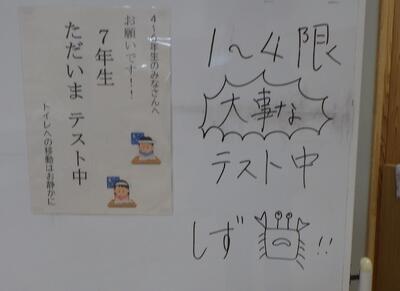 4～9年生のみなさんへ
お願いです!!
7年生
ただいま テスト中
トイレへの移動はお静かに
1～4限
大事な
テスト中
しず !!